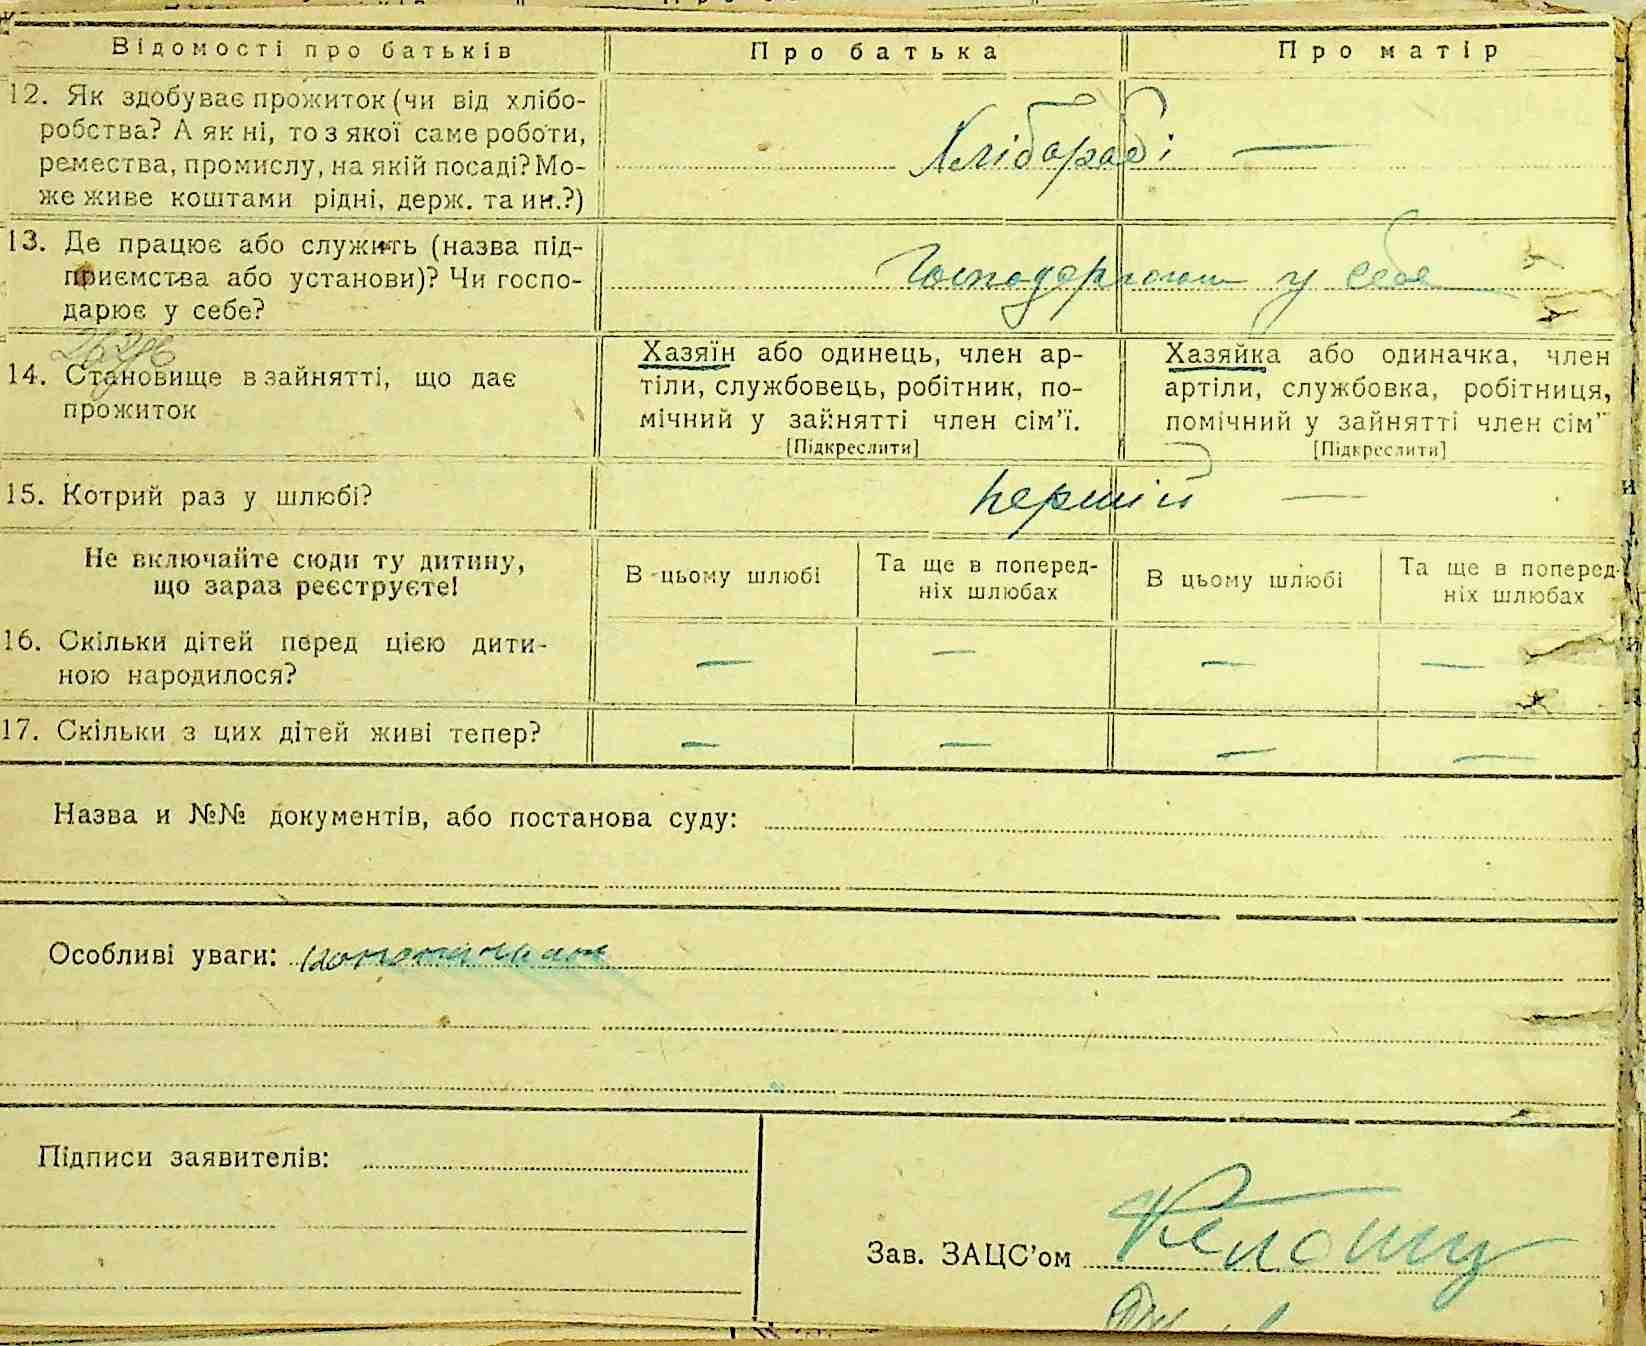 Відомості про батьків Про батька Про матір
12. Як здобуває прожиток (чи від хлібо-
робства? А як ні, то з якої саме роботи,
ремества, промислу, на якій посаді? Мо-
же живе коштами рідні, держ. та ин.?)
Хлібороб і —
13. Де працює або служить (назва під-
приємства або установи)? Чи госпо-
дарює у себе?
Господарюют у себе
14. Становище в зайнятті, що дає
прожиток
Хазяїн або одинець, член ар-
тіли, службовець, робітник, по-
мічний у зайнятті член сім'ї.
[Підкреслити]
Хазяйка або одиначка, член
артіли, службовка, робітниця,
помічний у зайнятті член сім'
[Підкреслити]
15. Котрий раз у шлюбі? першій —
Не включайте сюди ту дитину,
що зараз реєструєте!
В цьому шлюбі
Та ще в поперед-
ніх шлюбах
В цьому шлюбі
Та ще в поперед-
ніх шлюбах
16. Скільки дітей перед цією дити-
ною народилося?
— — — —
17. Скільки з цих дітей живі тепер? — — — —
Назва и №№ документів, або постанова суду:
Особливі уваги:
Підписи заявителів:
Зав. ЗАЦС'ом